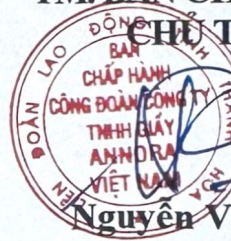 TM. BAN
CHỦ T
BAN
CHẤP HÀNH
CÔNG ĐOÀN CÔNG TY
TNHH GIẦY
ANNORA
VIỆT NAM
ĐOÀN LAO ĐỘNG
HÓA
Nguyễn V